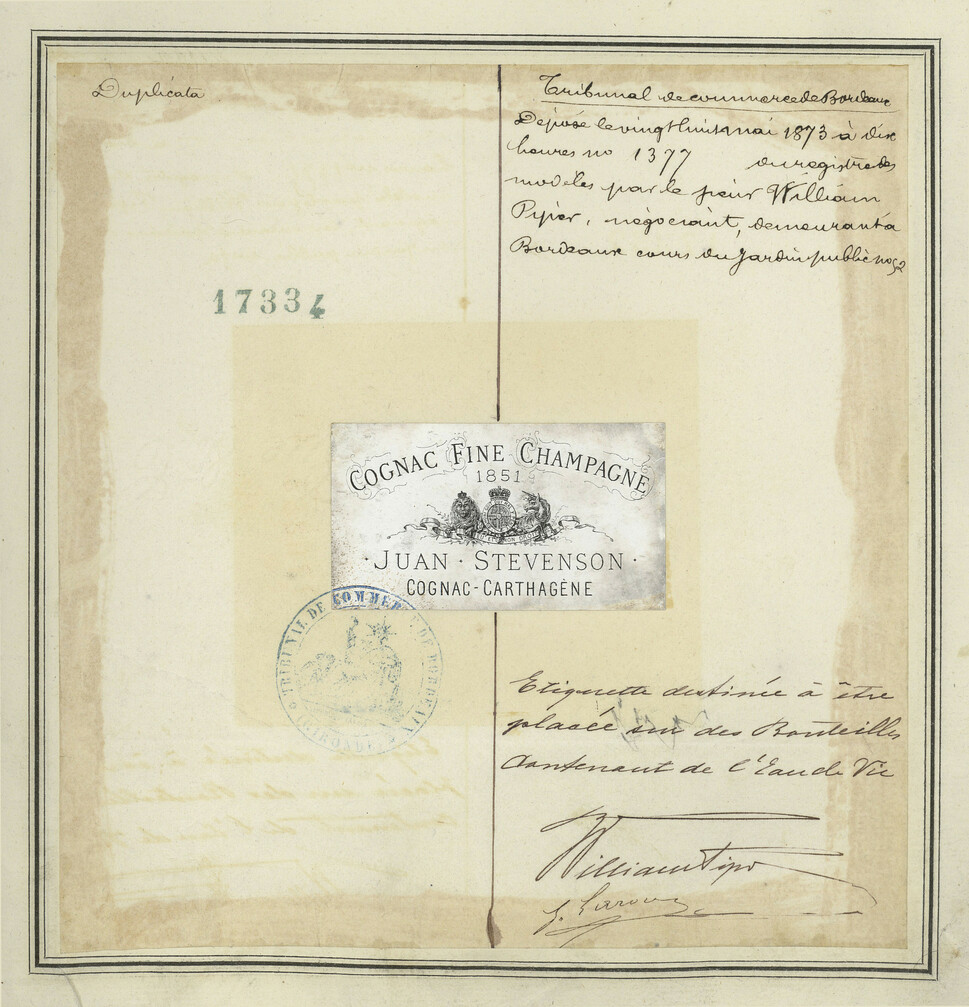 Duplicata
Tribunal de commerce de Bordeaux
Déposé le vingt huit mai 1873 à dix
heures no 1377 du registre des
modeles par le sieur William
négociant, demeurant à
Bordeaux cours du Jardin public no 92
17334
COGNAC FINE CHAMPAGNE
1851
· JUAN · STEVENSON ·
COGNAC-CARTHAGÈNE
TRIBUNAL DE COMMERCE DE BORDEAUX
GIRONDE
Etiquette destinée à être
placée sur des Bouteilles
Contenant de l'Eau de Vie
William